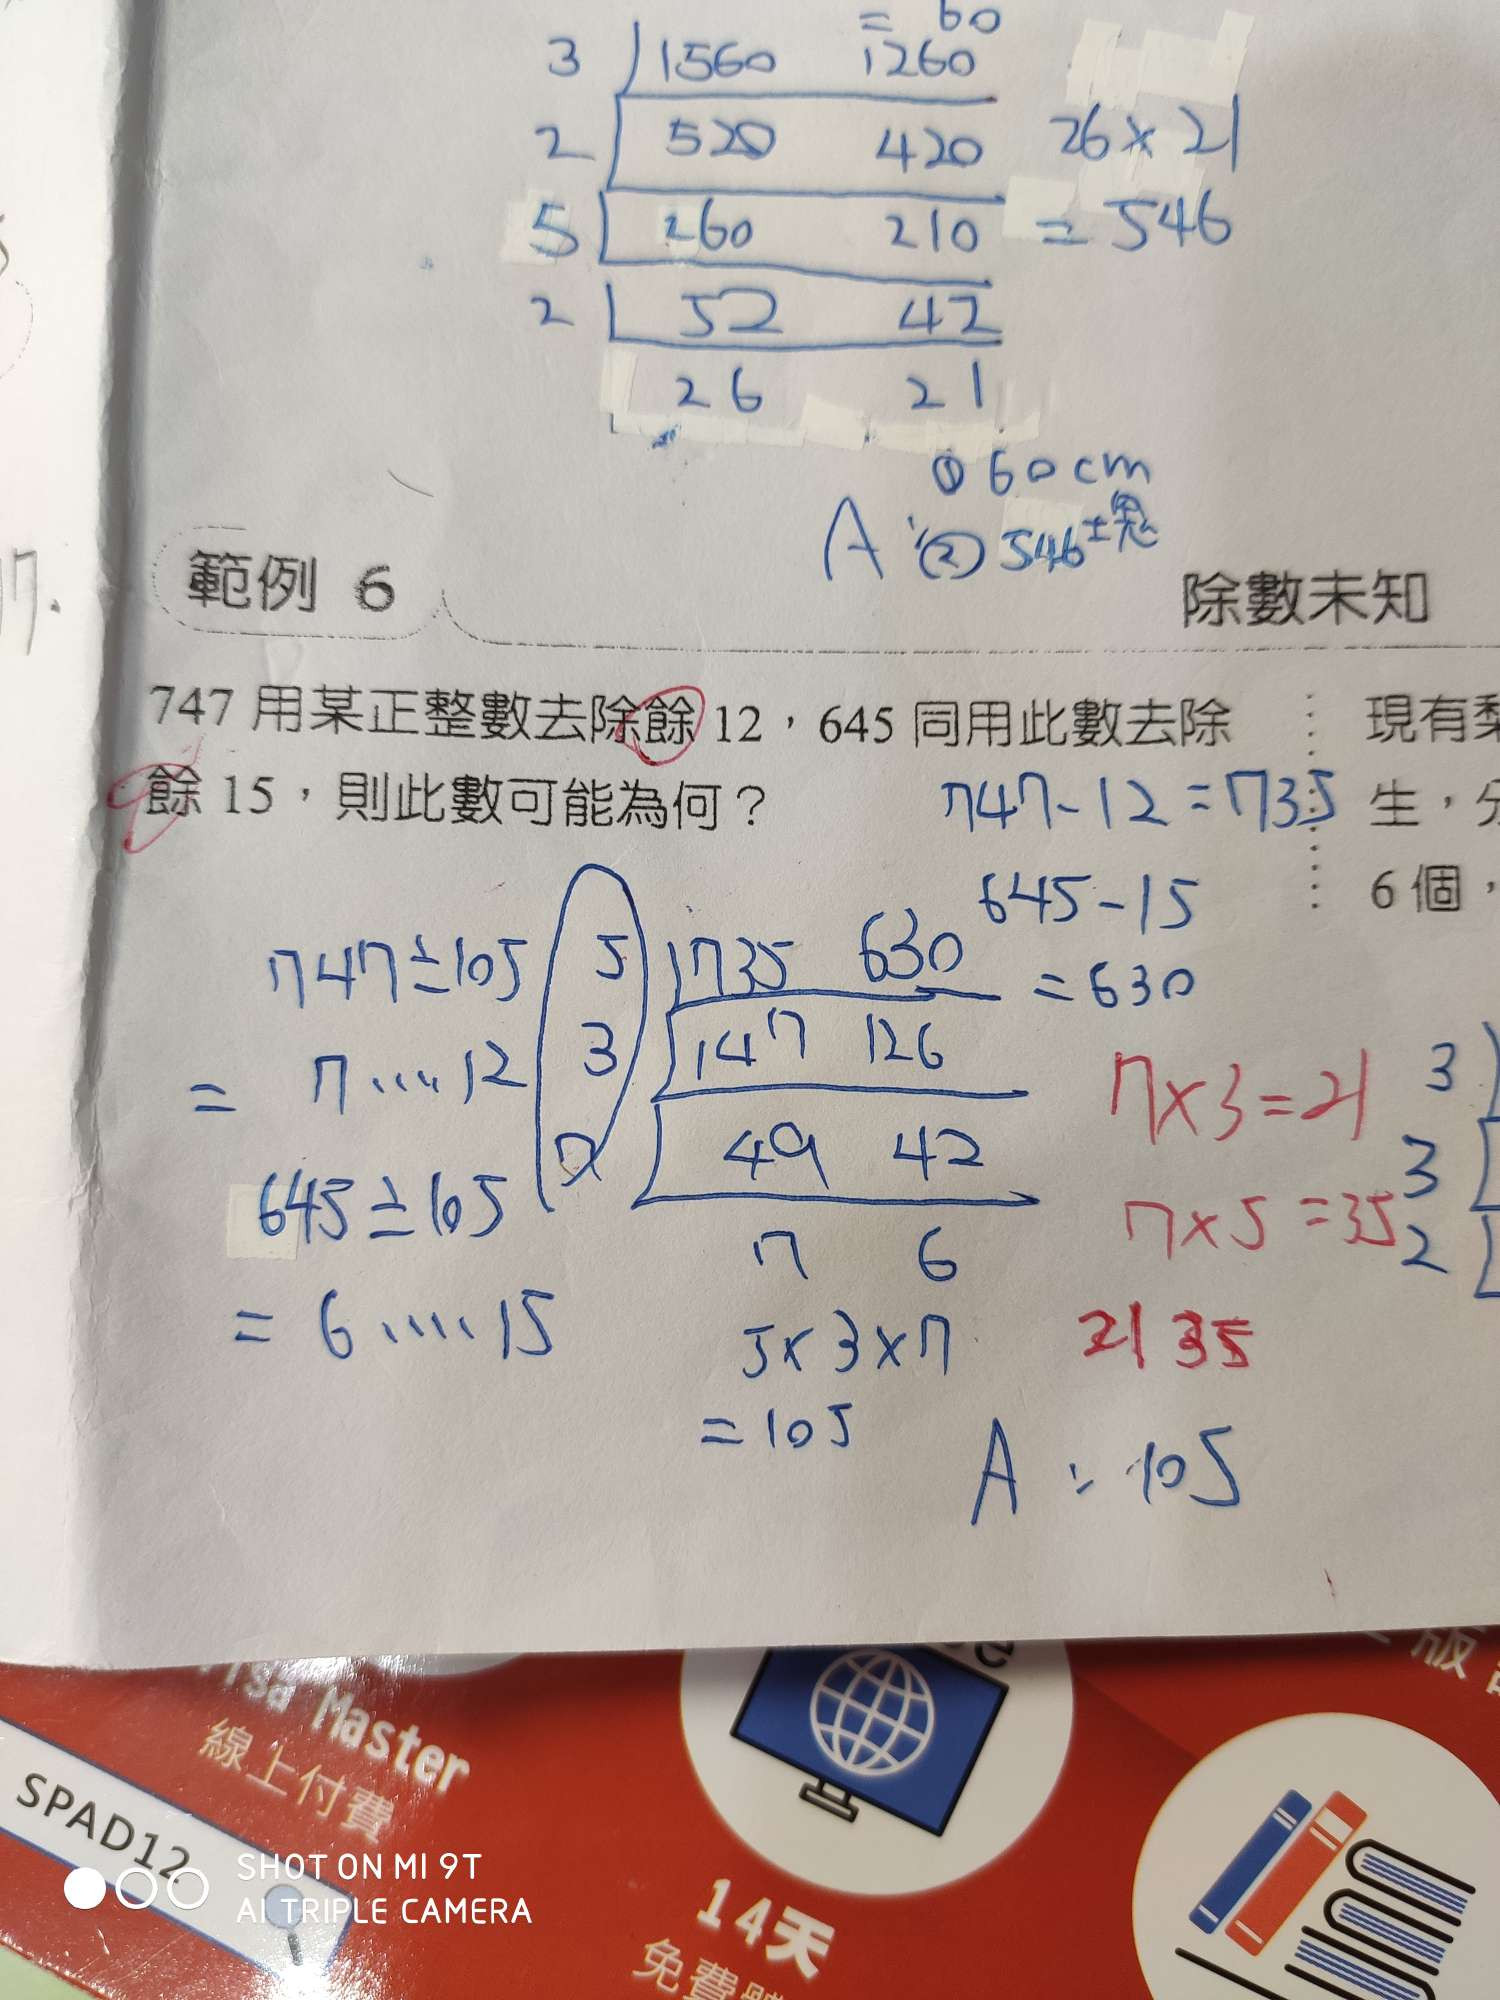 = 60
3 1560 1260
2 520 420 26×21
5 260 210 = 546
2 52 42
26 21
① 60cm
A: ② 546塊
範例 6
除數未知
747 用某正整數去除餘 12，645 同用此數去除
餘 15，則此數可能為何？
747-12=735
645-15
=630
747÷105
= 7……12
645÷105
= 6……15
5 735 630
3 147 126
7 49 42
7 6
5×3×7
=105
7×3=21
7×5=35
21 35
A: 105
現有梨
生，分
6 個，
3
3
2
17.
Visa Master
線上付費
SPAD12
14天
免費
版
SHOT ON MI 9T
AI TRIPLE CAMERA